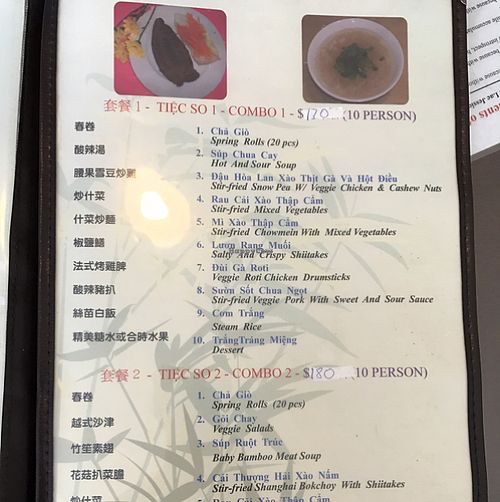 套餐 1 - TIỆC SO 1 - COMBO 1 - $170 (10 PERSON)
春卷 1. Chả Giò
Spring Rolls (20 pcs)
酸辣湯 2. Súp Chua Cay
Hot And Sour Soup
腰果雪豆炒雞 3. Đậu Hòa Lan Xào Thịt Gà Và Hột Điều
Stir-fried Snow Pea W/ Veggie Chicken & Cashew Nuts
炒什菜 4. Rau Cải Xào Thập Cẩm
Stir-fried Mixed Vegetables
什菜炒麵 5. Mì Xào Thập Cẩm
Stir-fried Chowmein With Mixed Vegetables
椒鹽鱔 6. Lươn Rang Muối
Salty And Crispy Shiitakes
法式烤雞脾 7. Đùi Gà Roti
Veggie Roti Chicken Drumsticks
酸辣豬扒 8. Sườn Sốt Chua Ngọt
Stir-fried Veggie Pork With Sweet And Sour Sauce
絲苗白飯 9. Cơm Trắng
Steam Rice
精美糖水或合時水果 10. TrắngTráng Miệng
Dessert
套餐 2 - TIỆC SO 2 - COMBO 2 - $180 (10 PERSON)
春卷 1. Chả Giò
Spring Rolls (20 pcs)
越式沙津 2. Gỏi Chay
Veggie Salads
竹笙素翅 3. Súp Ruột Trúc
Baby Bamboo Meat Soup
花菇扒菜膽 4. Cải Thượng Hải Xào Nấm
Stir-fried Shanghai Bokchoy With Shiitakes
炒什菜 5. Rau Cải Xào Thập Cẩm